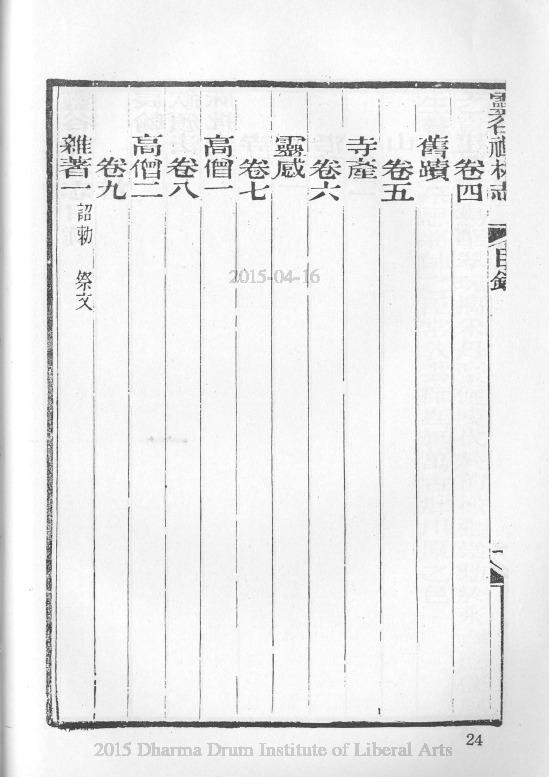 靈谷禪林志
目錄
卷四
舊蹟
卷五
寺產
卷六
靈感
卷七
高僧一
卷八
高僧二
卷九
雜著一 詔勅 祭文
2015-04-16
24
2015 Dharma Drum Institute of Liberal Arts